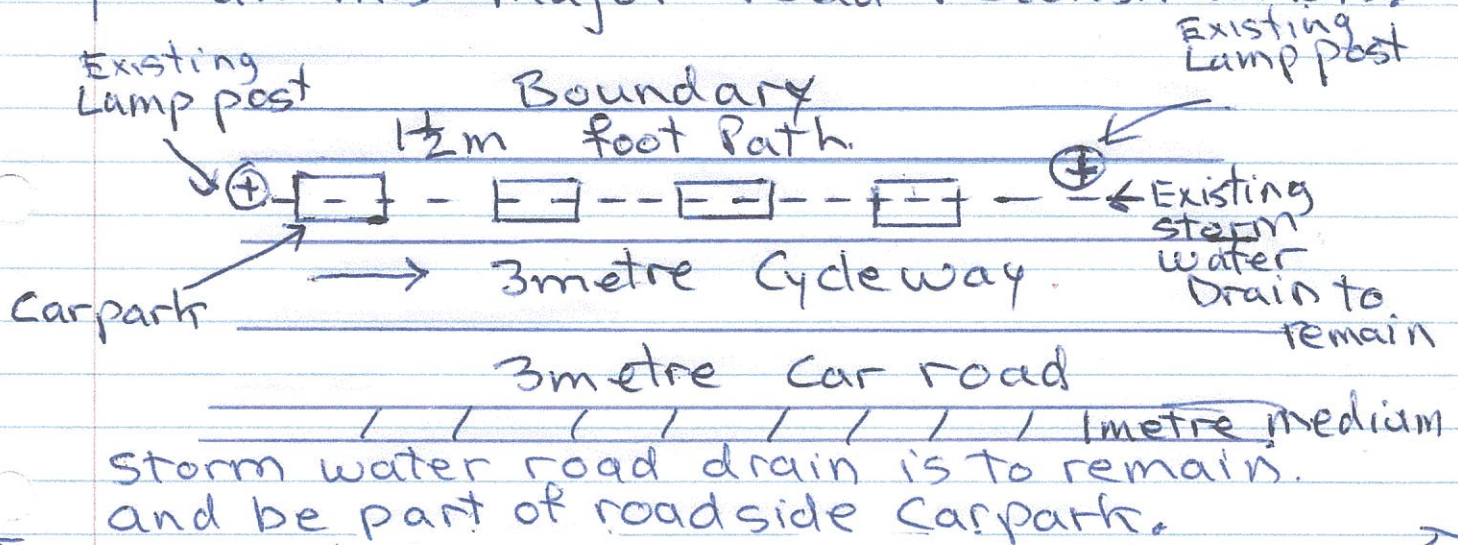 major road
Existing
Lamp post
Existing
Lamp post
Boundary
1½m foot Path.
Existing
storm
water
Drain to
remain
3metre Cycleway.
Carpark
3metre Car road
1metre medium
Storm water road drain is to remain.
and be part of roadside Carpark.